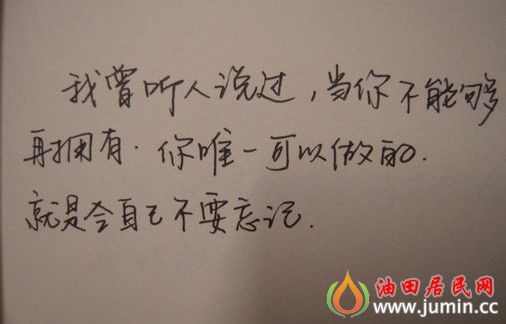 我曾听人说过，当你不能够
再拥有．你唯一可以做的．
就是令自己不要忘记．
油田居民网
www.jumin.cc